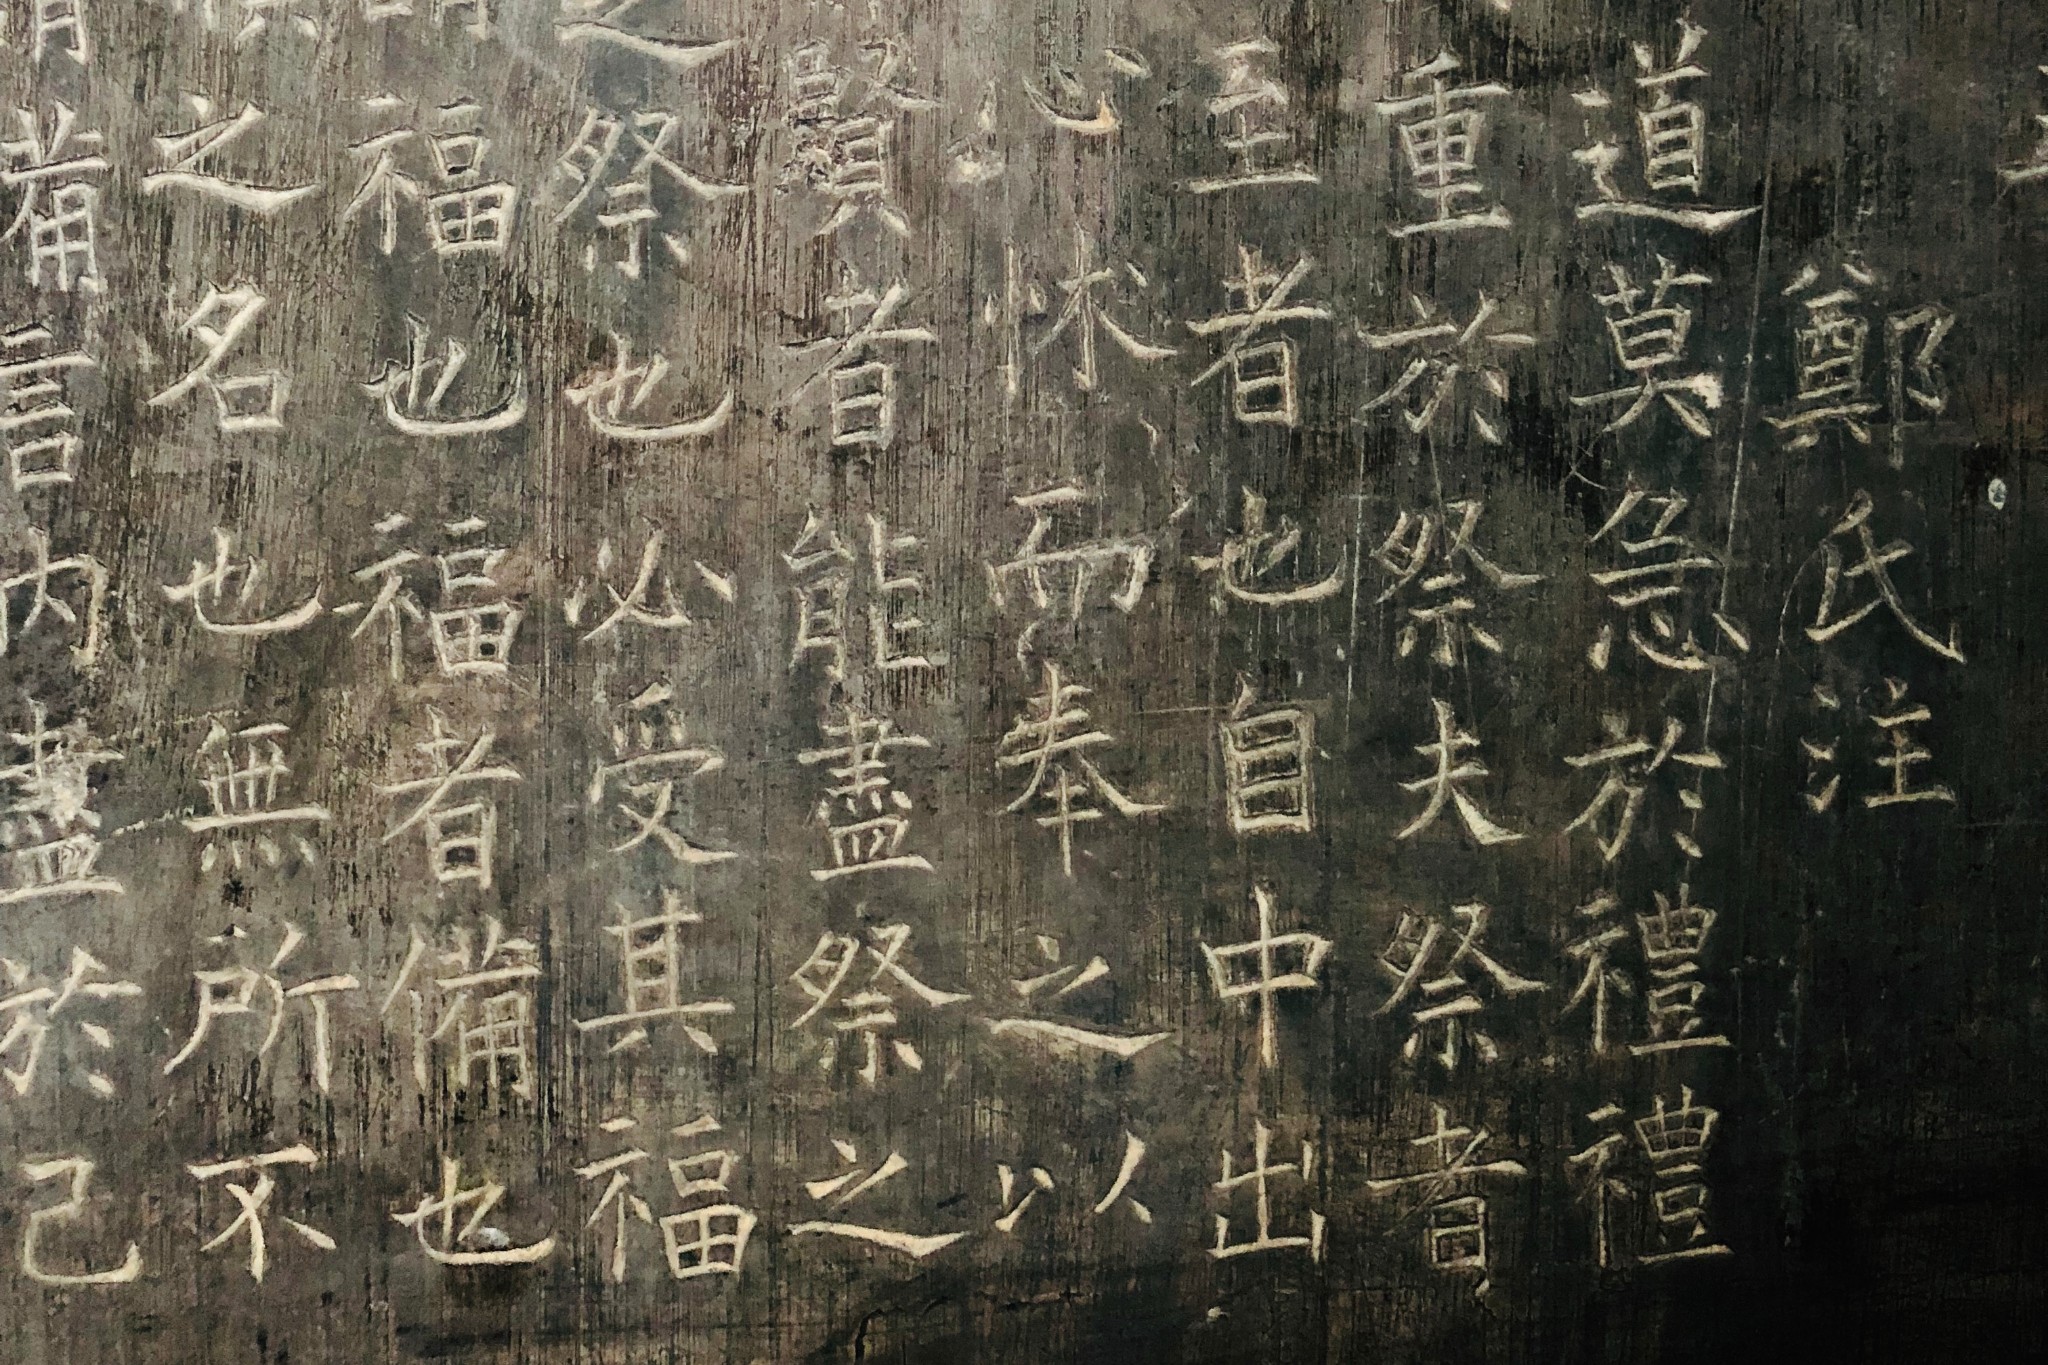 鄭氏注
道莫急於禮禮
重於祭夫祭者
至者也自中出
心怵而奉之以
賢者能盡祭之
之祭也必受其福
福也福者備也
之名也無所不
備言內盡於己